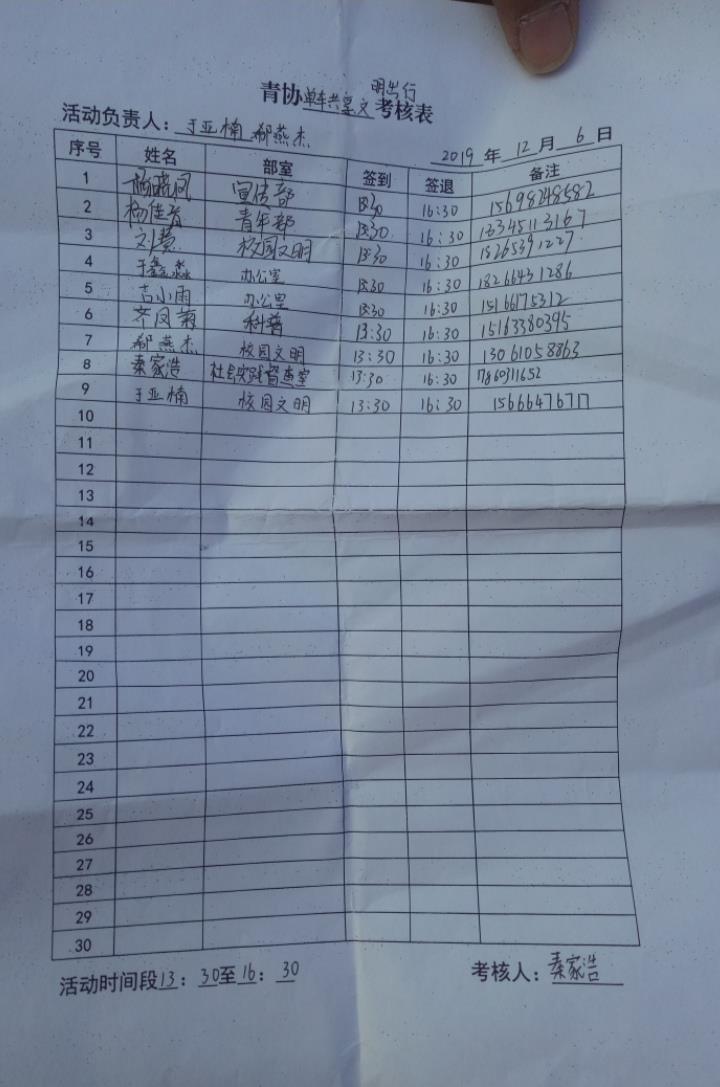 明出行
青协单车共享文考核表
活动负责人：于亚楠 郝燕杰
2019 年 12 月 6 日
序号 姓名 部室 签到 签退 备注
1 杨晓凤 宣传部 13:30 16:30 15698248582
2 杨佳 青年部 13:30 16:30 13345113167
3 刘慧 校园文明 13:30 16:30 15265391227
4 于鑫淼 办公室 13:30 16:30 18266431286
5 吉小雨 办公室 13:30 16:30 15166175312
6 齐凤菊 科普 13:30 16:30 15163380395
7 郝燕杰 校园文明 13:30 16:30 13061058863
8 秦家浩 社会实践督查室 13:30 16:30 17860311652
9 于亚楠 校园文明 13:30 16:30 15666476717
10
11
12
13
14
15
16
17
18
19
20
21
22
23
24
25
26
27
28
29
30
活动时间段13：30至16：30 考核人：秦家浩